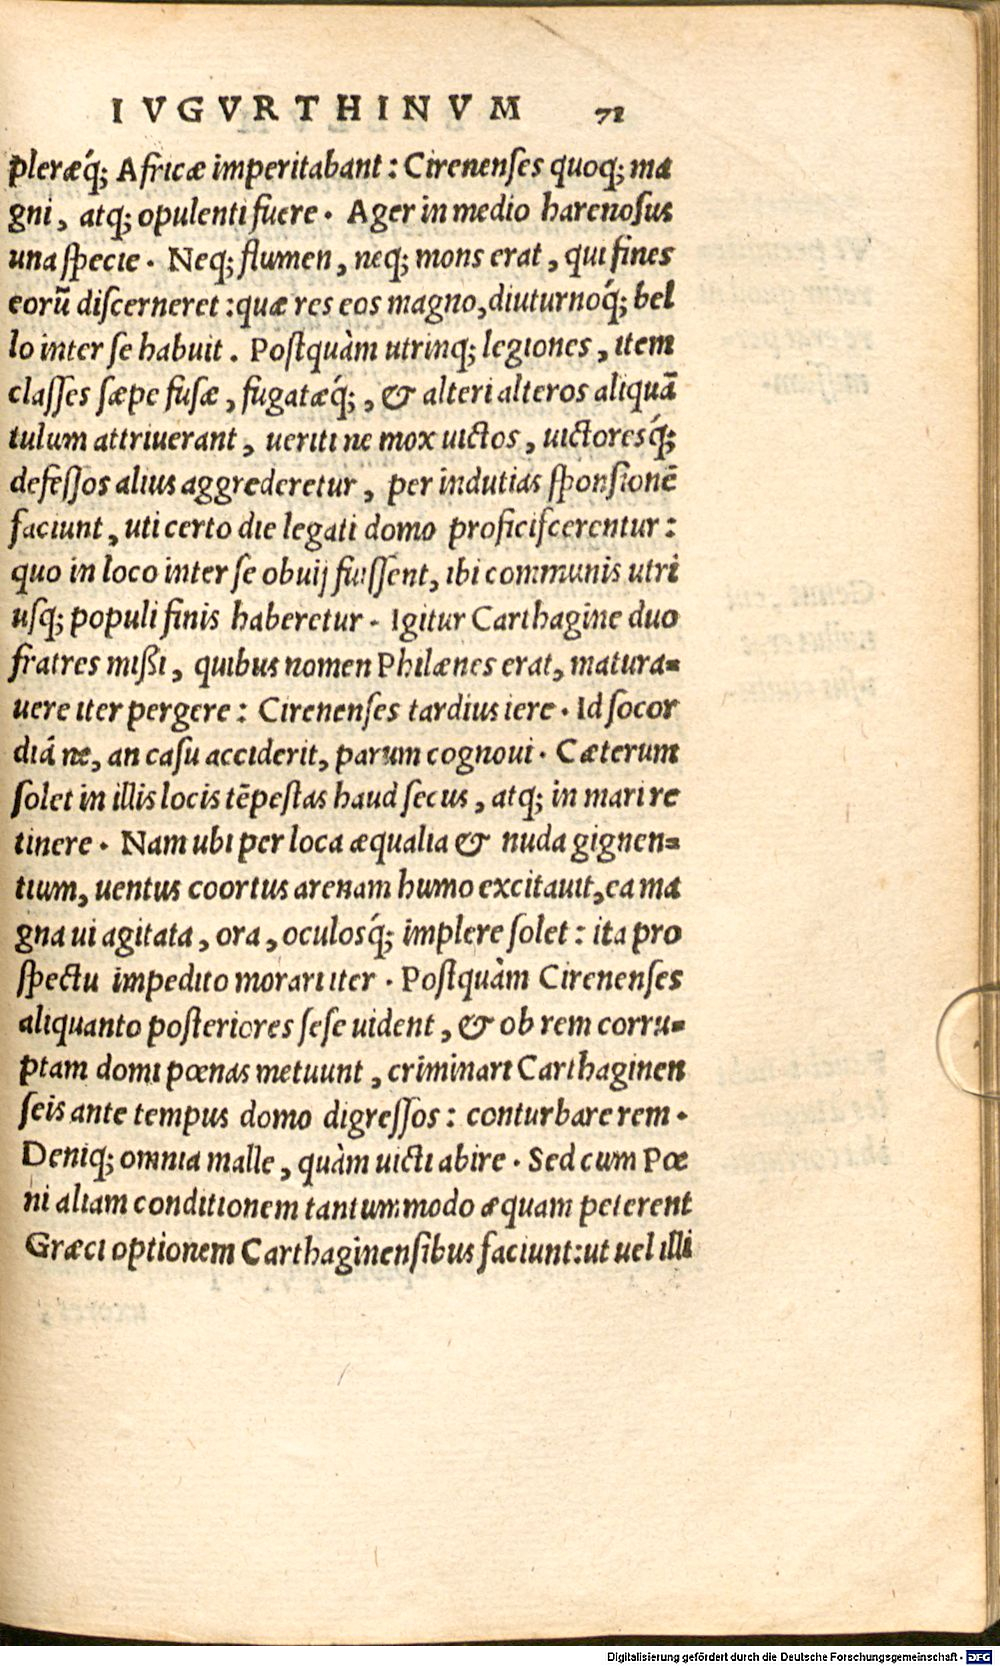 IVGVRTHINVM 71
pleræq́; Africæ imperitabant : Cirenenses quoq; ma
gni, atq; opulenti fuere . Ager in medio harenosus
una specie . Neq; flumen, neq; mons erat, qui fines
eorũ discerneret : quæ res eos magno, diuturnoq́; bel
lo inter se habuit . Postquàm utrinq; legiones, item
classes sæpe fusæ, fugatæq́;, & alteri alteros aliquã
tulum attriuerant, ueriti ne mox uictos, uictoresq́;
defessos alius aggrederetur, per indutias sponsionẽ
faciunt, uti certo die legati domo proficiscerentur :
quo in loco inter se obuij fuissent, ibi communis utri
usq; populi finis haberetur . Igitur Carthagine duo
fratres mißi, quibus nomen Philænes erat, matura=
uere iter pergere : Cirenenses tardius iere . Id socor
diá ne, an casu acciderit, parum cognoui . Cæterum
solet in illis locis tẽpestas haud secus, atq; in mari re
tinere . Nam ubi per loca æqualia & nuda gignen=
tium, uentus coortus arenam humo excitauit, ea ma
gna ui agitata, ora, oculosq́; implere solet : ita pro
spectu impedito morari iter . Postquàm Cirenenses
aliquanto posteriores sese uident, & ob rem corru=
ptam domi pœnas metuunt, criminari Carthaginen
seis ante tempus domo digressos : conturbare rem .
Deniq; omnia malle, quàm uicti abire . Sed cum Pœ
ni aliam conditionem tantummodo æquam peterent
Græci optionem Carthaginensibus faciunt : ut uel illi
Digitalisierung gefördert durch die Deutsche Forschungsgemeinschaft - DFG